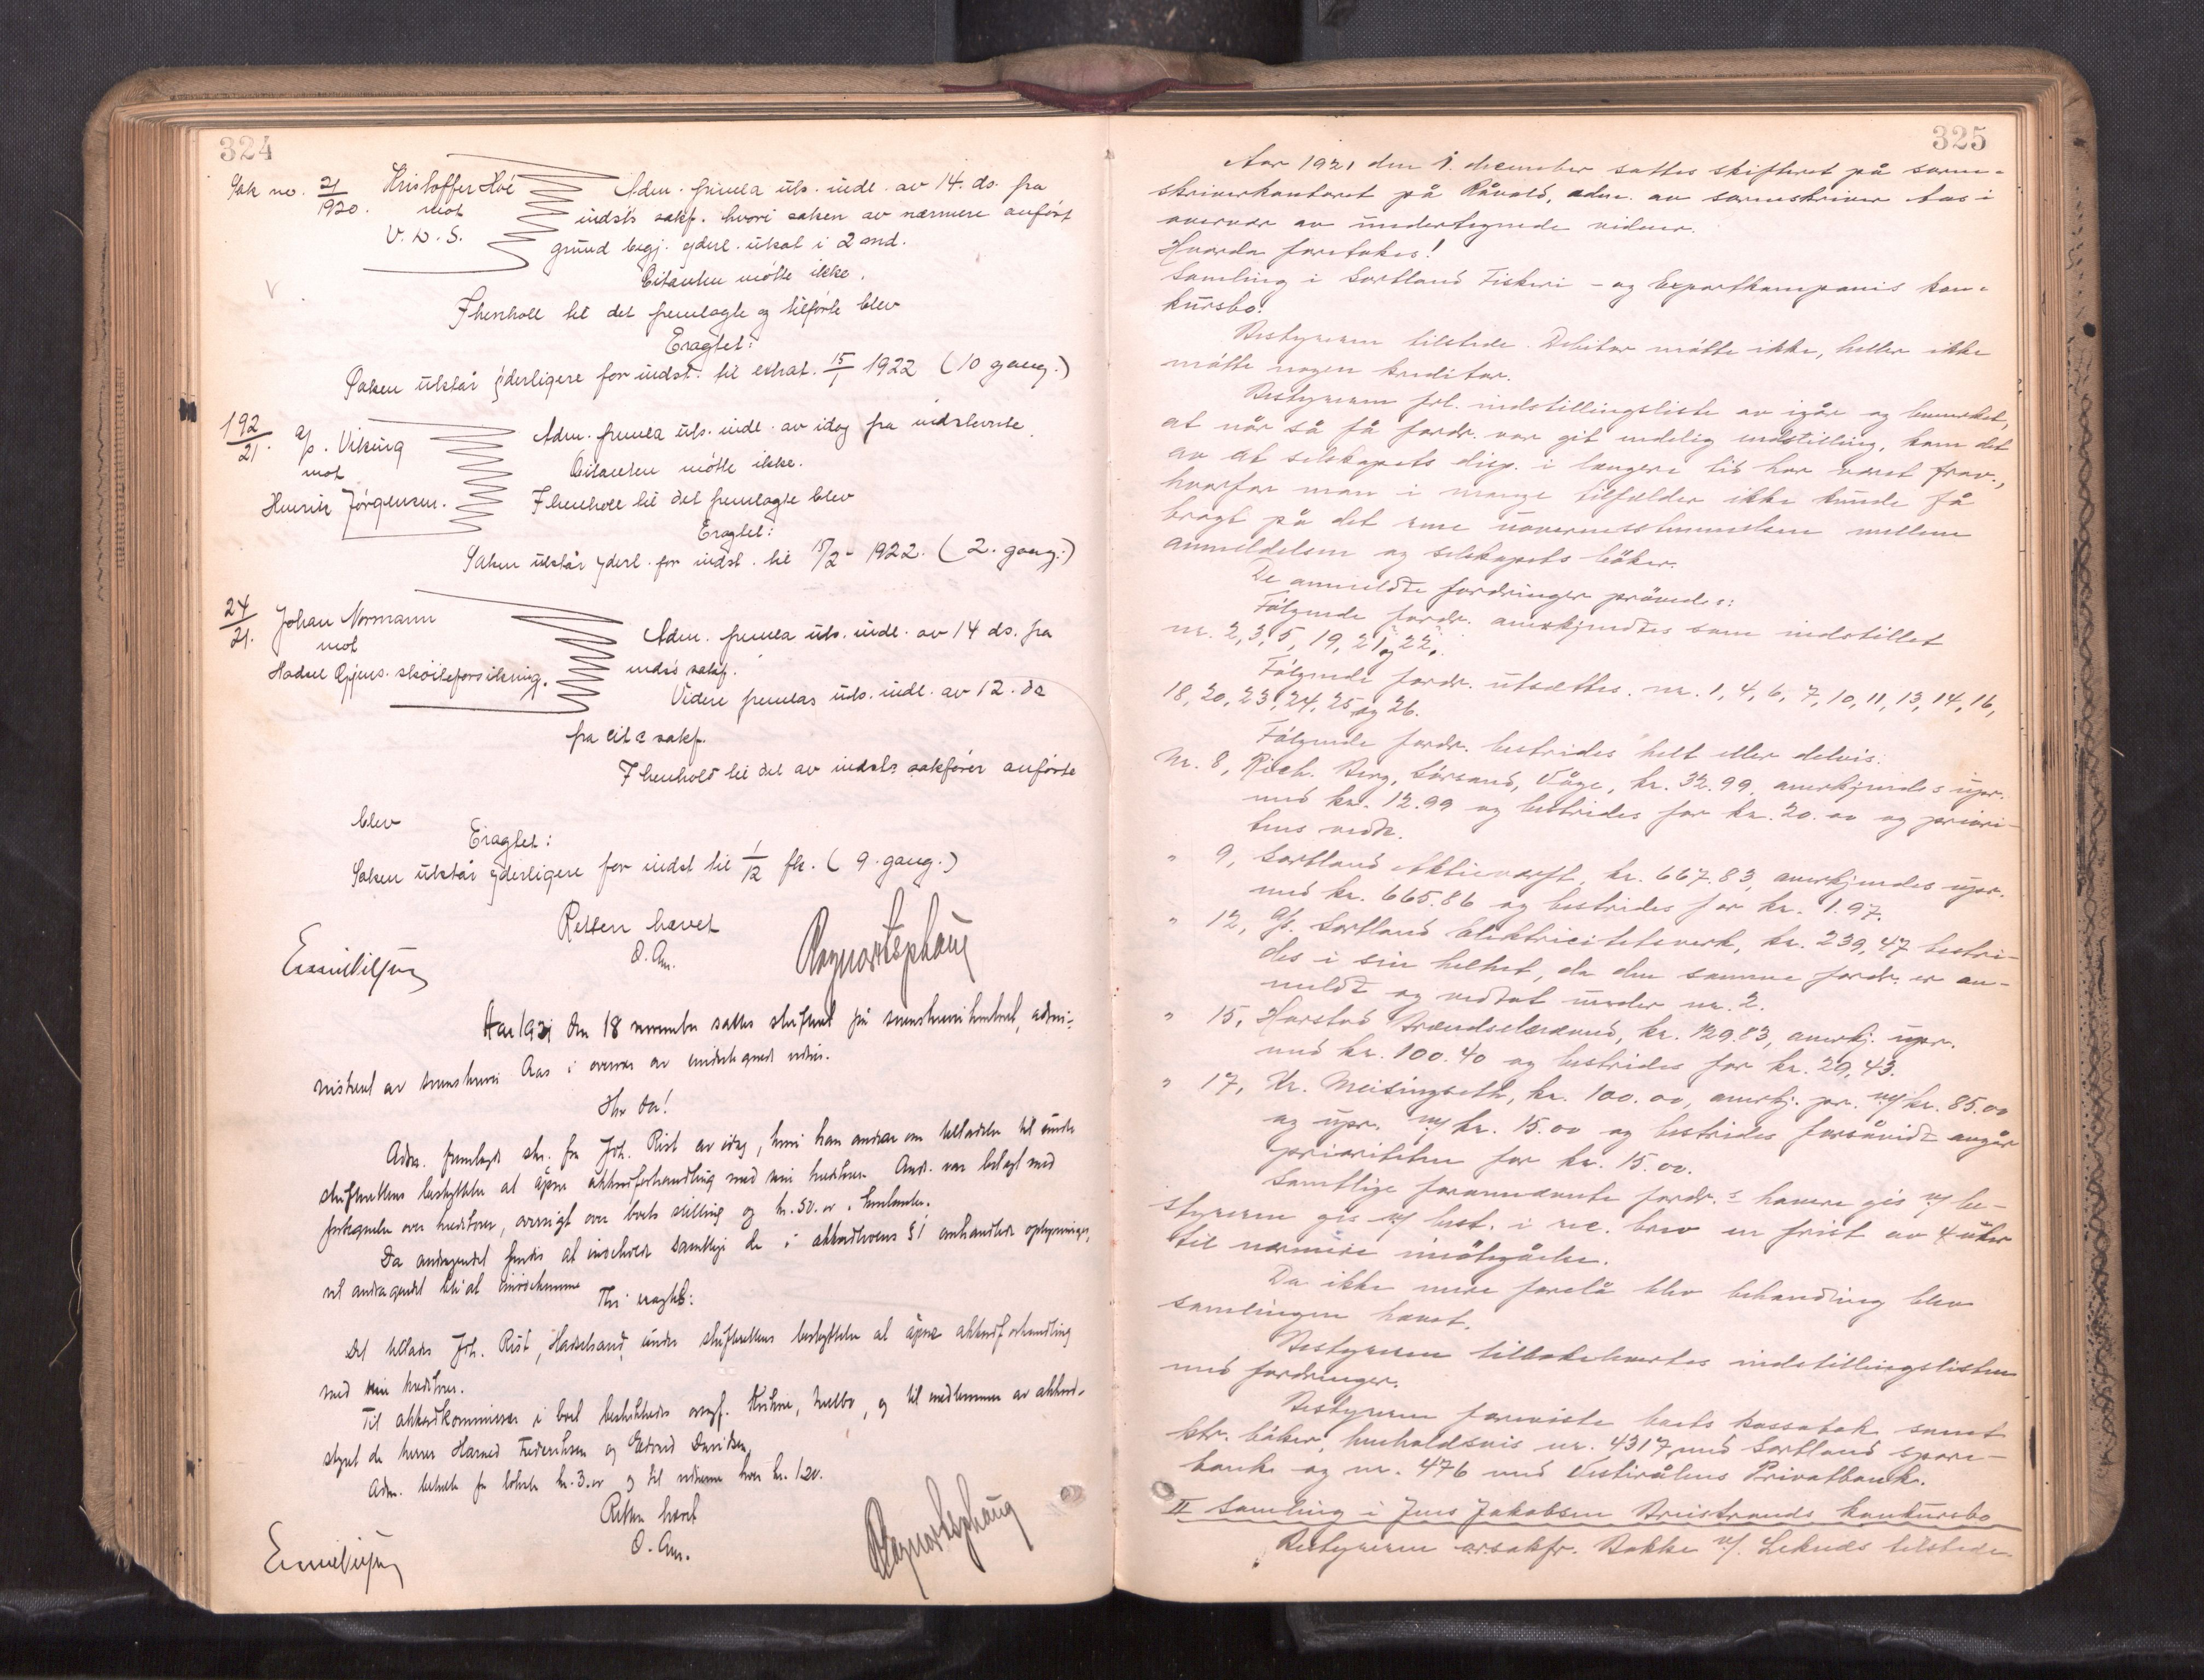 324
Sak no. 21/1920. Kristoffer Hoë
mot
V. D. S.
Adm. fremla uts. indl. av 14. ds. fra
indst's sakf. hvori saken av nærmere anført
grund begj. yderl. utsat i 2 mnd.
Citanten møtte ikke.
I henhold til det fremlagte og tilførte blev
Eragtet:
Saken utstår yderligere for indst. til extrat. 15/1 1922 (10 gang.)
192/21. A/S. Viking
mot
Henrik Jörgensen.
Adm. fremla uts. indl. av idag fra indstevnte
Citanten møtte ikke.
I henhold til det fremlagte blev
Eragtet:
Saken utstår yderl. for indst. til 15/2 - 1922. (2. gang.)
24/21. Johan Normann
mot
Hadsel Gjens. skøiteforsikring.
Adm. fremla uts. indl. av 14 ds. fra
inds's sakf.
Videre fremlas uts. indl. av 12. ds
fra cit's sakf.
I henhold til det av indst's sakfører anførte
blev
Eragtet:
Saken utstår yderligere for indst til 1/12 fk. (9. gang.)
Retten hævet
O. Aas.
Ragnar Esphaug
Aar 1921 den 18 november sattes skifteret på sorenskriverkontoret, admi-
nistreret av sorenskriver Aas i overvær av undertegnede vidner.
Hvorda!
Adm. fremlagde skr. fra Joh. Rist av idag, hvori han andrar om tilladelse til under
skifterettens beskyttelse at åpne akkordforhandling med sine kreditorer. Andr. var bilagt med
fortegnelse over kreditorer, oversigt over boets stilling og kr. 50.00 i
Da andragendet findes at indeholde samtlige de i akkordlovens § 1 omhandlede oplysninger,
vil andragendet bli at imøtekomme
Thi eragtes:
Det tillades Joh. Rist, Hadselsand, under skifterettens beskyttelse at åpne akkordforhandling
med sine kreditorer.
Til akkordkommissær i boet beskikkedes orsakf. Melbo, og til medlemmer av akkord-
styret de herrer Harved Frederiksen og Edvard Davidsen.
Adm. betalte for lokale kr. 3.00 og til vidnerne hver kr. 1.20.
Retten hævet
O. Aas.
Ragnar Esphaug
325
Aar 1921 den 1. december sattes skifteret på soren-
skriverkontoret på Råvold, adm. av sorenskriver Aas i
overvær av undertegnede vidner.
Hvorda foretokes!
Samling i Sortland Fiskeri- og Exportkompanis kon-
kursbo!
Bestyreren tilstede. Debitor møtte ikke, heller ikke
møtte nogen kreditor.
Bestyreren frl. indstillingsliste av igår og bemerket,
at når så få fordr. var git endelig indstilling, kom det
av at selskapets disp. i længere tid har været frav.,
hvorfor man i mange tilfælder ikke kunde få
bragt på det rene uoverensstemmelsen mellem
anmeldelsen og selskapets bøker.
De anmeldte fordringer prøvedes:
Følgende fordr. anerkjendtes som indstillet
nr. 2, 3, 5, 19, 21 og 22.
Følgende fordr. utsættes. nr. 1, 4, 6, 7, 10, 11, 13, 14, 16,
18, 20, 23, 24, 25 og 26.
Følgende fordr. bestrides helt eller delvis:
Nr. 8, Rich. Berg, Sørsand, Våge, kr. 32.99, anerkjendes upr.
med kr. 12.99 og bestrides for kr. 20.00 og priori-
tets vedk.
" 9, Sortland Aktieverft, kr. 667.83, anerkjendes upr.
med kr. 665.86 og bestrides for kr. 1.97.
" 12, A/S. Sortland Elektricitetsverk, kr. 239,47 bestri-
des i sin helhet, da den samme fordr. er an-
meldt og vedtat under nr. 2.
" 15, Harstad Brændselsrænd, kr. 129.83, anerkj. upr.
med kr. 100.40 og bestrides for kr. 29,43.
" 17, Kr. Meisingseth, kr. 100.00, anerkj. pr. m/ kr. 85.00
og upr. m/ kr. 15.00 og bestrides forsåvidt angår
prioriteten for kr. 15.00.
Samtlige forannævnte fordr.s havere gis v/ be-
styreren gis v/ best. i rec. brev en frist av 4 uker
til nærmere imøtegåelse.
Da ikke mere forelå blev behandling blev
samlingen hævet.
Bestyreren tilbakelevertes indstillingslisten
med fordringer.
Bestyreren foreviste boets kassabok samt
ktr. bøker, innholdsvis nr. 4317 med Sortland spare-
bank og nr. 476 med Vesterålens Privatbank.
II Samling i Jens Jakobsen Breistrands konkursbo
Bestyreren orsakfr. Bakke v/. Leknes tilstede.